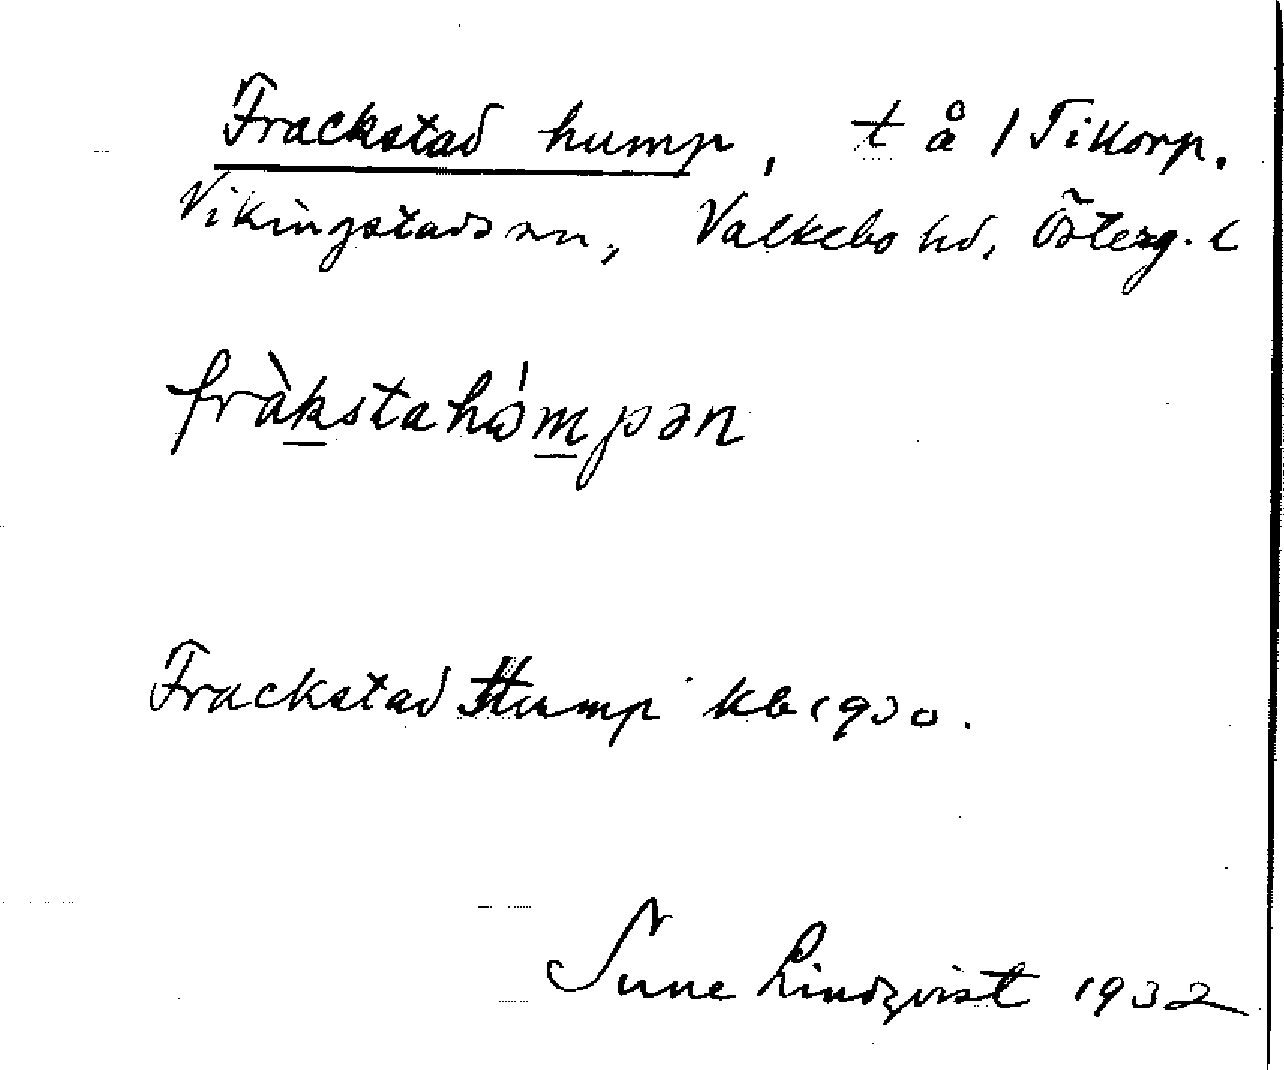 Frackstad hump, t å 1 Tikorp.
Vikingstads sn, Valkebo hd, Österg. l
fràkstahòmpən
Frackstad Hump kb 1930.
Sune Lindqvist 1932